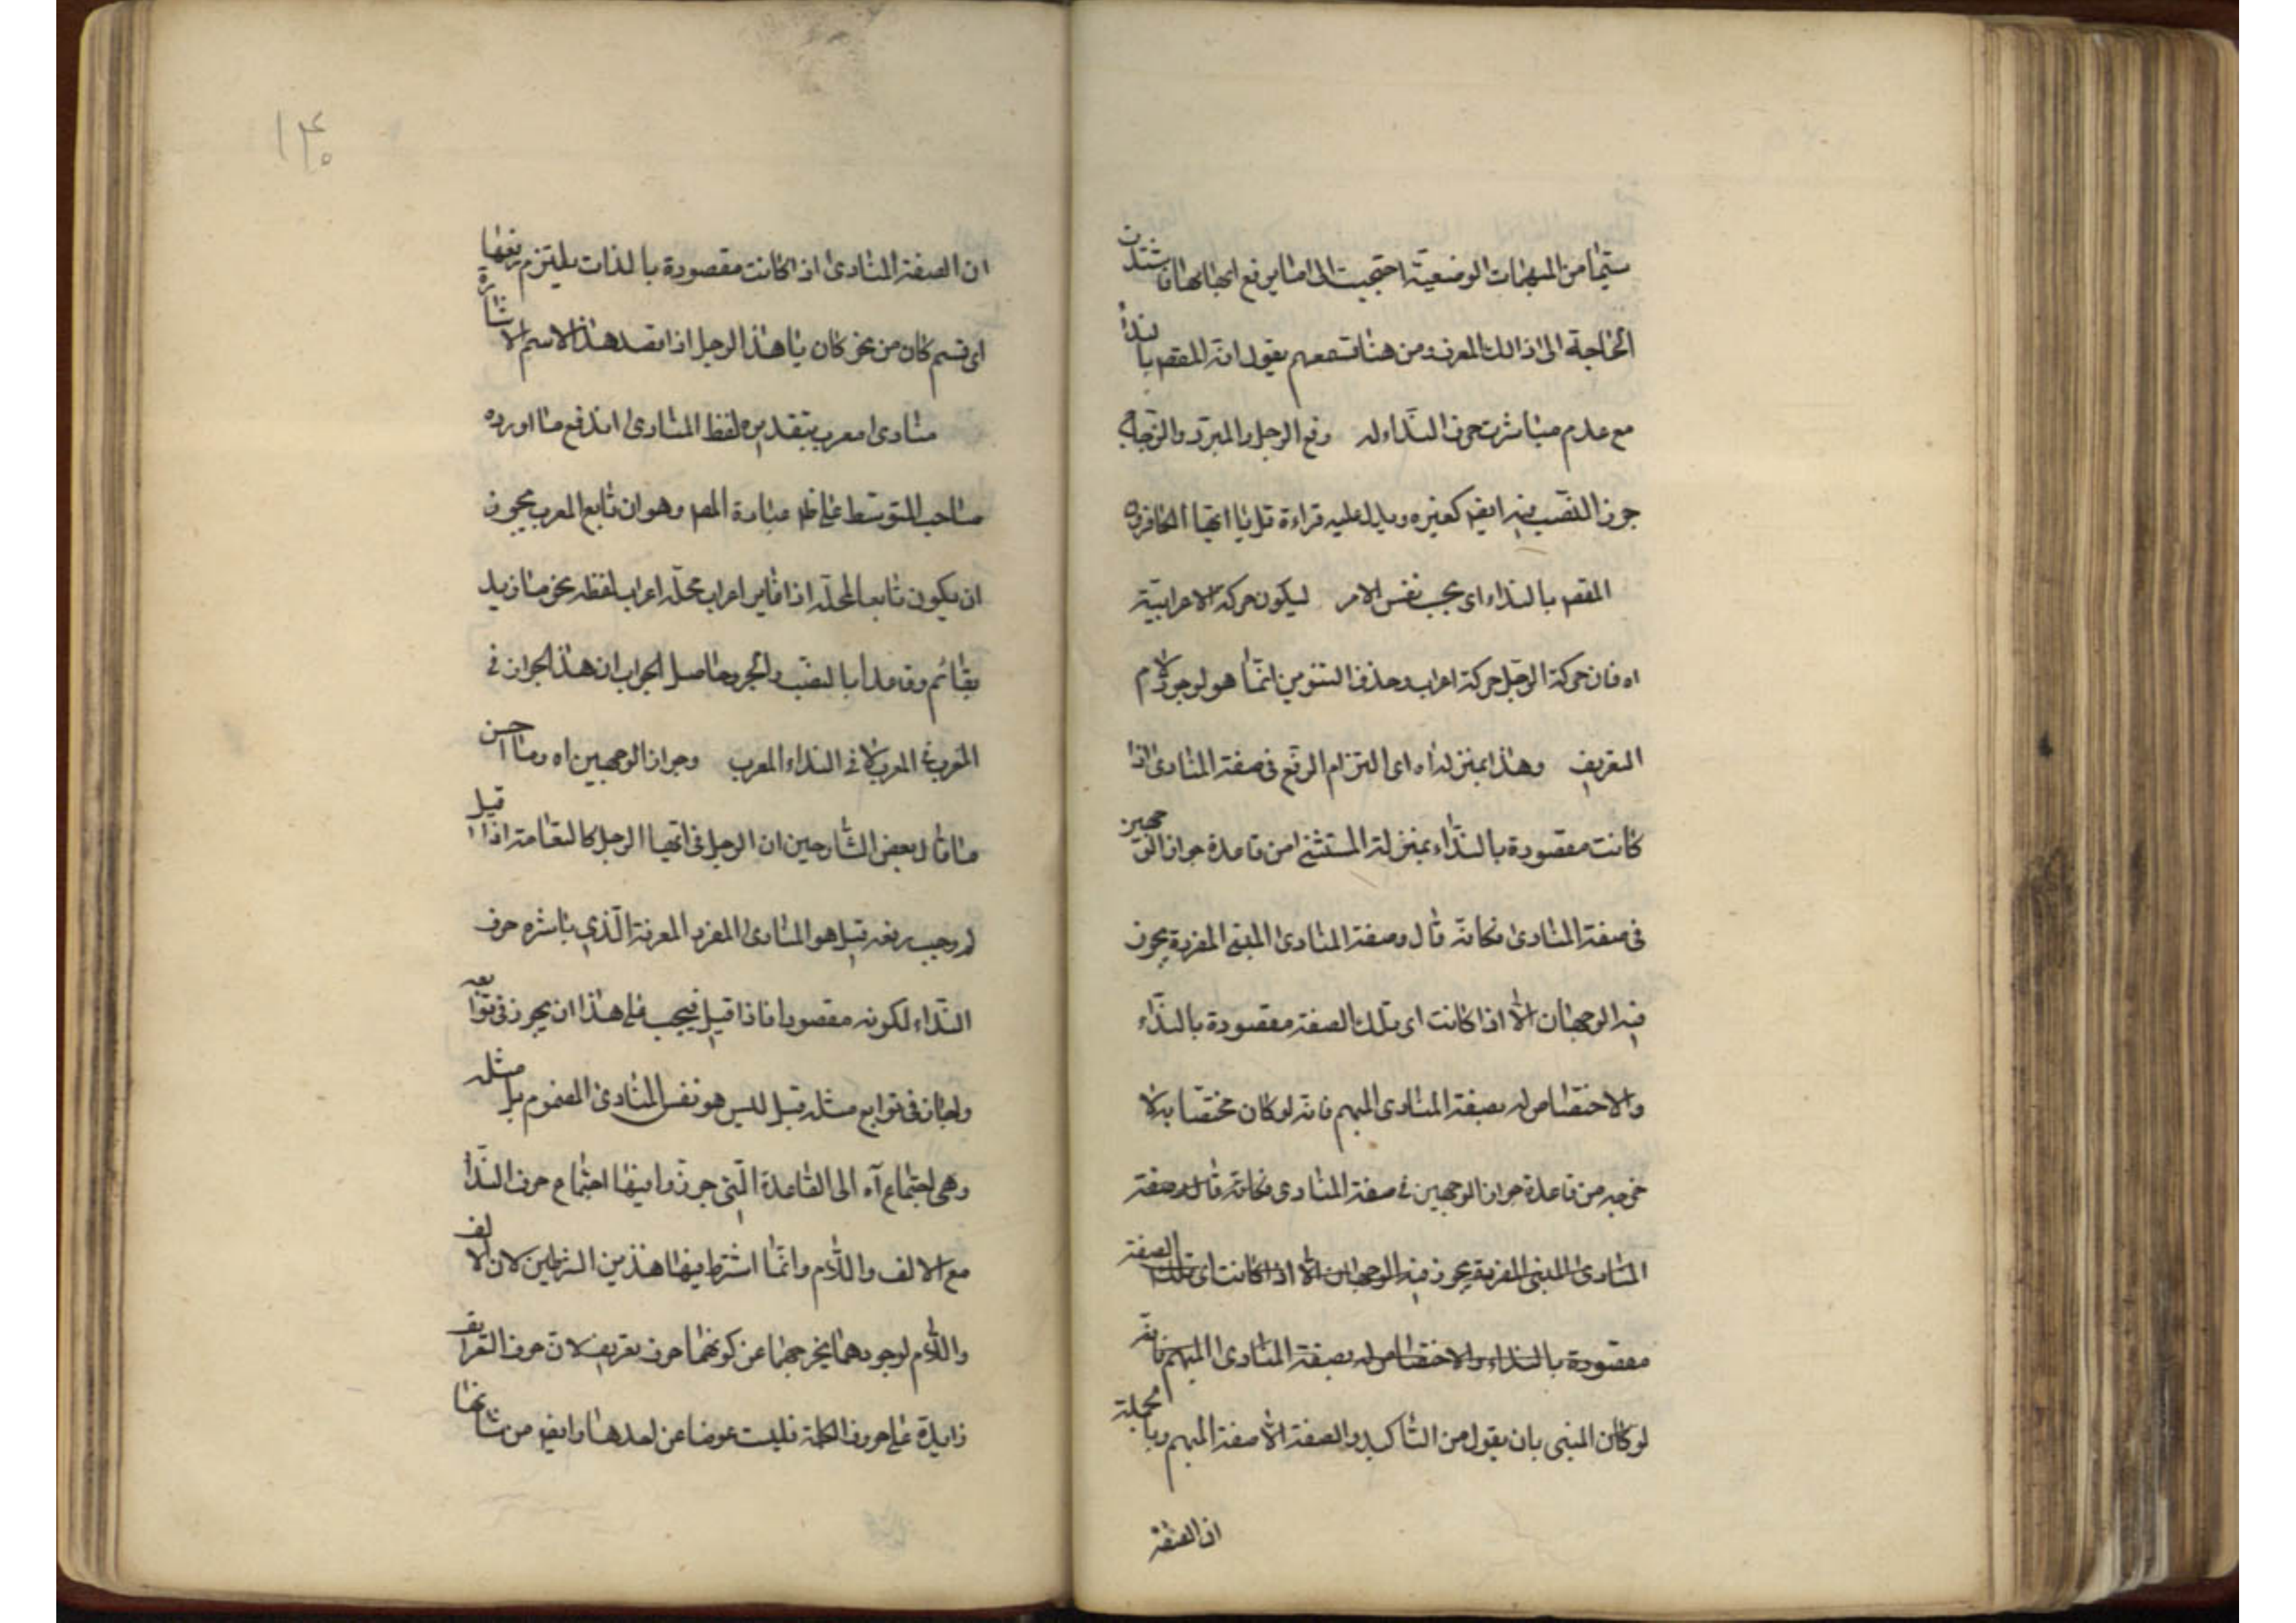 سيما من المبهمات الوضعية احتجيت الى ما يرفع ابهامها فاشتدت
الحاجة الى ذالك المعرف ومن هنا تسمعهم يقول انه المقصود بالنداء
مع عدم مباشرت حرف النداء له رفع الرجل والمبرد والزجاج
جوز النصب فيه ايضا كغيره ويدل عليه قراءة قل يا ايها الكافرون
المقصود بالنداء اى بحسب نفس الامر ليكون حركة الاعرابية
اه فان حركة الرجل حركة اعراب وحذف التنوين انما هو لوجود لام
التعريف وهذا بمنزلة اه اى التزام الرفع فى صفة المنادى اذا
كانت مقصودة بالنداء بمنزلة المستثنى من قاعدة جواز الوجهين
فى صفة المنادى فكانه قال وصفة المنادى المبنى المفردة يجوز
فيه الوجهان الا اذا كانت اى تلك الصفة مقصودة بالنداء
والاختصاص له بصفة المنادى المبهم فانه لو كان مختصا به لا
خرجه من قاعدة جواز الوجهين فى صفة المنادى فكانه قال وصفة
المنادى المبنى المفردة يجوز فيه الوجهان الا اذا كانت اى تلك الصفة
مقصودة بالنداء والاختصاص له بصفة المنادى المبهم فانه
لو كان المبنى بان يقول من التاكيد والصفة الا صفة المبهم وبالجملة
ان الصفة
١٤٠
ان الصفة المنادى اذا كانت مقصودة بالذات يلتزم رفعها
اى قسم كان من نحو كان يا هذا الرجل اذا قصد هذا الاسم الاشارة
منادى معرب بتقديره لفظ المنادى اندفع ما اورده
صاحب المتوسط على عبارة المصـ وهو ان تابع المعرب يجوز
ان يكون تابعا لمحله اذا غاير اعراب محله اعراب لفظه نحو ما زيد
بقائم وقاعدا بالنصب والجر وحاصل الجواب ان هذا الجواز فى
المعرب فى المعرب لا فى النداء المعرب وجواز الوجهين اه وما احسن
ما قال بعض الشارحين ان الرجل فى ايها الرجل كالنعامة اذا قيل
لم وجب رفعه قيل هو المنادى المفرد المعرفة الذي باشره حرف
النداء لكونه مقصودا فاذا قيل فيجب على هذا ان يجوز فى توابعه
ما جاز فى توابع مثله قيل ليس هو نفس المنادى المضموم بل مثله
وهى اجتماع آه الى القاعدة التى جوزوا فيها اجتماع حرف النداء
مع الالف واللام وانما اشترط فيها هذين الشرطين لان الالف
واللام لوجودهما يخرجهما عن كونهما حرف تعريف لان حرف التعريف
زايدة على حروف الكلمة فليست عوضا عن احدها وايضا من شانها